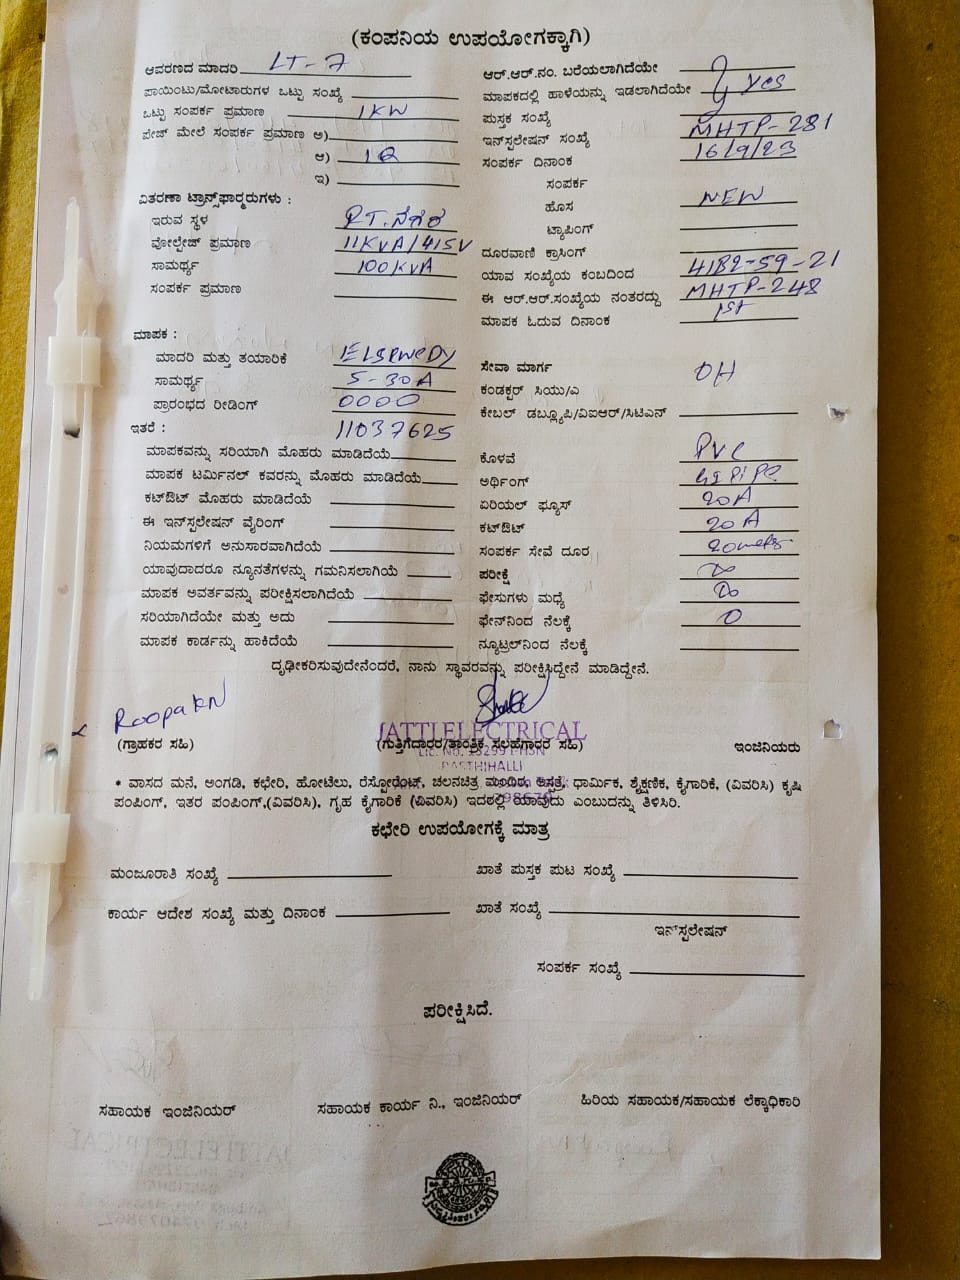 (ಕಂಪನಿಯ ಉಪಯೋಗಕ್ಕಾಗಿ)
ಆವರಣದ ಮಾದರಿ LT-7
ಪಾಯಿಂಟು/ಮೋಟಾರುಗಳ ಒಟ್ಟು ಸಂಖ್ಯೆ
ಒಟ್ಟು ಸಂಪರ್ಕ ಪ್ರಮಾಣ 1KW
ಪೇಜ್ ಮೇಲೆ ಸಂಪರ್ಕ ಪ್ರಮಾಣ ಅ)
ಆ)
ಇ)
ವಿತರಣಾ ಟ್ರಾನ್ಸ್‌ಫಾರ್ಮರುಗಳು :
ಇರುವ ಸ್ಥಳ RT.ನಗರ
ವೋಲ್ಟೇಜ್ ಪ್ರಮಾಣ 11KVA/415V
ಸಾಮರ್ಥ್ಯ 100KVA
ಸಂಪರ್ಕ ಪ್ರಮಾಣ
ಮಾಪಕ :
ಮಾದರಿ ಮತ್ತು ತಯಾರಿಕೆ
ಸಾಮರ್ಥ್ಯ 5-30A
ಪ್ರಾರಂಭದ ರೀಡಿಂಗ್ 0000
ಇತರೆ : 11037625
ಮಾಪಕವನ್ನು ಸರಿಯಾಗಿ ಮೊಹರು ಮಾಡಿದೆಯೆ
ಮಾಪಕ ಟರ್ಮಿನಲ್ ಕವರನ್ನು ಮೊಹರು ಮಾಡಿದೆಯೆ
ಕಟ್‌ಔಟ್ ಮೊಹರು ಮಾಡಿದೆಯೆ
ಈ ಇನ್‌ಸ್ಪಲೇಷನ್ ವೈರಿಂಗ್
ನಿಯಮಗಳಿಗೆ ಅನುಸಾರವಾಗಿದೆಯೆ
ಯಾವುದಾದರೂ ನ್ಯೂನತೆಗಳನ್ನು ಗಮನಿಸಲಾಗಿಯೆ
ಮಾಪಕ ಅವರ್ತವನ್ನು ಪರೀಕ್ಷಿಸಲಾಗಿದೆಯೆ
ಸರಿಯಾಗಿದೆಯೇ ಮತ್ತು ಅದು
ಮಾಪಕ ಕಾರ್ಡನ್ನು ಹಾಕಿದೆಯೆ
ಆರ್.ಆರ್.ನಂ. ಬರೆಯಲಾಗಿದೆಯೇ
ಮಾಪಕದಲ್ಲಿ ಹಾಳೆಯನ್ನು ಇಡಲಾಗಿದೆಯೇ yes
ಪುಸ್ತಕ ಸಂಖ್ಯೆ
ಇನ್‌ಸ್ಪಲೇಷನ್ ಸಂಖ್ಯೆ MHTP-281
ಸಂಪರ್ಕ ದಿನಾಂಕ 16/9/23
ಸಂಪರ್ಕ
ಹೊಸ NEW
ಟ್ಯಾಪಿಂಗ್
ದೂರವಾಣಿ ಕ್ರಾಸಿಂಗ್
ಯಾವ ಸಂಖ್ಯೆಯ ಕಂಬದಿಂದ 4182-59-21
ಈ ಆರ್.ಆರ್.ಸಂಖ್ಯೆಯ ನಂತರದ್ದು MHTP-248
ಮಾಪಕ ಓದುವ ದಿನಾಂಕ 1st
ಸೇವಾ ಮಾರ್ಗ OH
ಕಂಡಕ್ಟರ್ ಸಿಯು/ಎ
ಕೇಬಲ್ ಡಬ್ಲ್ಯೂಪಿ/ವಿಐಆರ್/ಸಿಟಿಎನ್
ಕೊಳವೆ PVC
ಅರ್ಥಿಂಗ್ GI PiPe
ಏರಿಯಲ್ ಫ್ಯೂಸ್ 20A
ಕಟ್‌ಔಟ್ 20A
ಸಂಪರ್ಕ ಸೇವೆ ದೂರ
ಪರೀಕ್ಷೆ
ಫೇಸುಗಳು ಮಧ್ಯೆ
ಫೇಸ್‌ನಿಂದ ನೆಲಕ್ಕೆ 0
ನ್ಯೂಟ್ರಲ್‌ನಿಂದ ನೆಲಕ್ಕೆ
ದೃಢೀಕರಿಸುವುದೇನೆಂದರೆ, ನಾನು ಸ್ಥಾವರವನ್ನು ಪರೀಕ್ಷಿಸಿದ್ದೇನೆ ಮಾಡಿದ್ದೇನೆ.
Roopa KN
JATTI ELECTRICAL
(ಗ್ರಾಹಕರ ಸಹಿ) (ಗುತ್ತಿಗೆದಾರರ/ತಾಂತ್ರಿಕ ಸಲಹೆಗಾರರ ಸಹಿ) ಇಂಜಿನಿಯರು
* ವಾಸದ ಮನೆ, ಅಂಗಡಿ, ಕಛೇರಿ, ಹೋಟೆಲು, ರೆಸ್ಟೋರೆಂಟ್, ಚಲನಚಿತ್ರ ಮಂದಿರ, ಆಸ್ಪತ್ರೆ, ಧಾರ್ಮಿಕ, ಶೈಕ್ಷಣಿಕ, ಕೈಗಾರಿಕೆ, (ವಿವರಿಸಿ) ಕೃಷಿ
ಪಂಪಿಂಗ್, ಇತರ ಪಂಪಿಂಗ್,(ವಿವರಿಸಿ), ಗೃಹ ಕೈಗಾರಿಕೆ (ವಿವರಿಸಿ) ಇದರಲ್ಲಿ ಯಾವುದು ಎಂಬುದನ್ನು ತಿಳಿಸಿರಿ.
ಕಛೇರಿ ಉಪಯೋಗಕ್ಕೆ ಮಾತ್ರ
ಮಂಜೂರಾತಿ ಸಂಖ್ಯೆ ಖಾತೆ ಪುಸ್ತಕ ಪುಟ ಸಂಖ್ಯೆ
ಕಾರ್ಯ ಆದೇಶ ಸಂಖ್ಯೆ ಮತ್ತು ದಿನಾಂಕ ಖಾತೆ ಸಂಖ್ಯೆ
ಇನ್‌ಸ್ಪಲೇಷನ್
ಸಂಪರ್ಕ ಸಂಖ್ಯೆ
ಪರೀಕ್ಷಿಸಿದೆ.
ಸಹಾಯಕ ಇಂಜಿನಿಯರ್ ಸಹಾಯಕ ಕಾರ್ಯ ನಿ., ಇಂಜಿನಿಯರ್ ಹಿರಿಯ ಸಹಾಯಕ/ಸಹಾಯಕ ಲೆಕ್ಕಾಧಿಕಾರಿ